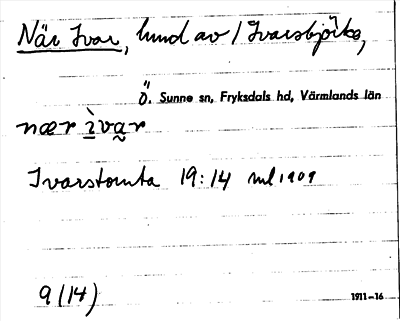 När Ivar, hmd av / Ivarsbjörke,
Ö. Sunne sn, Fryksdals hd, Värmlands län
nær ìvar
Ivarstomta 19:14 ml 1909
9 (14)
1911–16